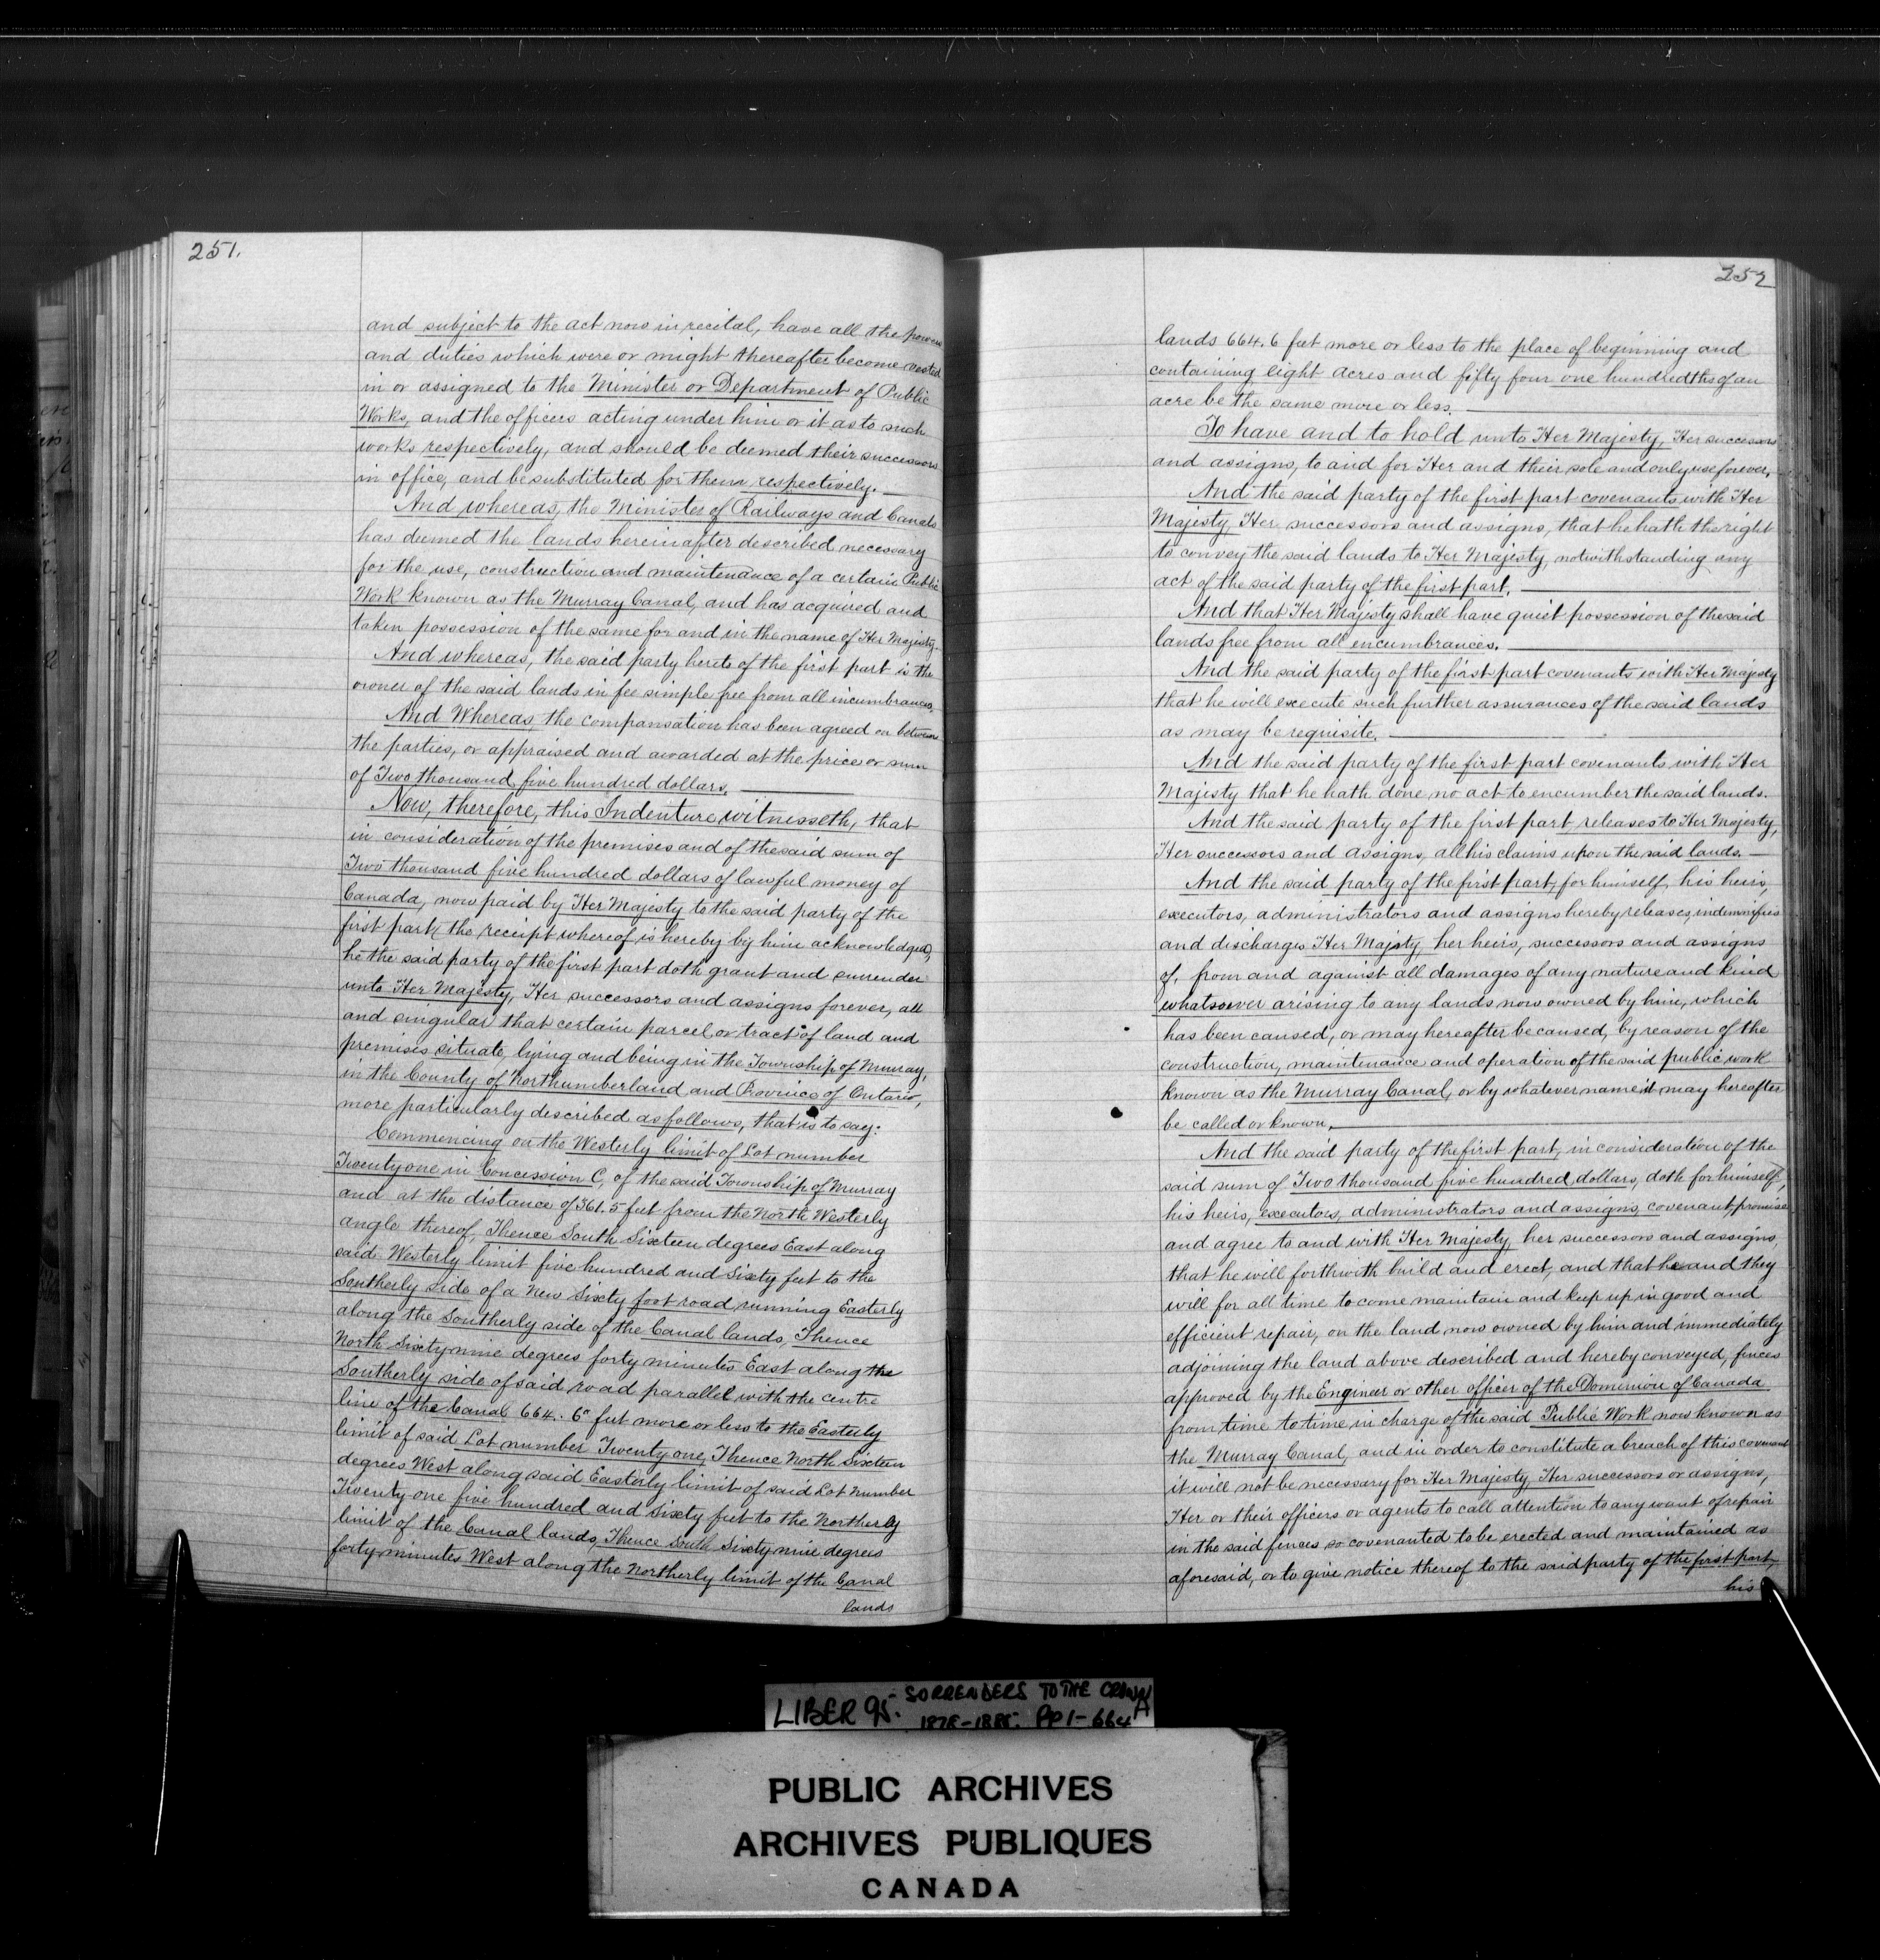 251.
and subject to the act now in recital, have all the powers
and duties which were or might thereafter become vested
in or assigned to the Minister or Department of Public
Works, and the officers acting under him or it as to such
works respectively, and should be deemed their successors
in office, and be substituted for them respectively.
And whereas, the Minister of Railways and Canals
has deemed the lands hereinafter described necessary
for the use, construction and maintenance of a certain Public
Work known as the Murray Canal, and has acquired and
taken possession of the same for and in the name of Her Majesty.
And whereas, the said party hereto of the first part is the
owner of the said lands in fee simple free from all incumbrances.
And Whereas, the compansation has been agreed on between
the parties, or appraised and awarded at the price or sum
of Two thousand five hundred dollars.
Now, therefore, this Indenture witnesseth, that
in consideration of the premises and of the said sum of
Two thousand five hundred dollars of lawful money of
Canada, now paid by Her Majesty to the said party of the
first part (the receipt whereof is hereby by him acknowledged),
he the said party of the first part doth grant and surrender
unto Her Majesty, Her successors and assigns forever, all
and singular that certain parcel or tract of land and
premises situate, lying and being in the Township of Murray,
in the County of Northumberland and Province of Ontario,
more particularly described as follows, that is to say:
Commencing on the Westerly limit of Lot number
Twenty one in Concession C, of the said Township of Murray
and at the distance of 361.5 feet from the North Westerly
angle thereof, Thence South Sixteen degrees East along
said Westerly limit five hundred and Sixty feet to the
Southerly side of a New Sixty foot road running Easterly
along the Southerly side of the Canal lands, Thence
North Sixty nine degrees forty minutes East along the
Southerly side of said road parallel with the centre
line of the Canal 664.6 feet more or less to the Easterly
limit of said Lot number Twenty one, Thence North Sixteen
degrees West along said Easterly limit of said Lot Number
Twenty one five hundred and Sixty feet to the Northerly
limit of the Canal lands, Thence South Sixty nine degrees
forty minutes West along the Northerly limit of the Canal
lands
252
lands 664.6 feet more or less to the place of beginning and
containing eight acres and fifty four one hundredths of an
acre be the same more or less.
To have and to hold unto Her Majesty, Her successors
and assigns, to and for Her and their sole and only use forever.
And the said party of the first part covenants with Her
Majesty, Her successors and assigns, that he hath the right
to convey the said lands to Her Majesty notwithstanding any
act of the said party of the first part.
And that Her Majesty shall have quiet possession of the said
lands free from all encumbrances.
And the said party of the first part covenants with Her Majesty
that he will execute such further assurances of the said lands
as may be requisite.
And the said party of the first part covenants with Her
Majesty that he hath done no act to encumber the said lands.
And the said party of the first part releases to Her Majesty,
Her successors and assigns, all his claims upon the said lands.
And the said party of the first part, for himself, his heirs,
executors, administrators and assigns hereby releases, indemnifies
and discharges Her Majesty, her heirs, successors and assigns
of, from and against all damages of any nature and kind
whatsoever arising to any lands now owned by him, which
has been caused, or may hereafter be caused, by reason of the
construction, maintenance and operation of the said public work
known as the Murray Canal, or by whatever name it may hereafter
be called or known.
And the said party of the first part, in consideration of the
said sum of Two thousand five hundred dollars, doth for himself,
his heirs, executors, administrators and assigns, covenant, promise
and agree to and with Her Majesty, her successors and assigns,
that he will forthwith build and erect, and that he and they
will for all time to come maintain and keep up in good and
efficient repair, on the land now owned by him and immediately
adjoining the land above described and hereby conveyed, fences
approved by the Engineer or other officer of the Dominion of Canada
from time to time in charge of the said Public Work now known as
the Murray Canal, and in order to constitute a breach of this covenant
it will not be necessary for Her Majesty, Her successors or assigns,
Her or their officers or agents to call attention to any want of repair
in the said fences so covenanted to be erected and maintained as
aforesaid, or to give notice thereof to the said party of the first part,
his
LIBER 95. SORRENDERS TO THE CROWN A
1878-1885. PP 1-664
PUBLIC ARCHIVES
ARCHIVES PUBLIQUES
CANADA